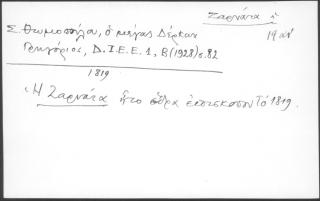 Ζαρνάτα ἡ
19 αἰ
Σ. Θωμοπούλου, ὁ μέγας Δέρκων
Γρηγόριος, Δ.Ι.Ε.Ε. 1, Β (1928) σ. 82
1819
Ἡ Ζαρνάτα ἦτο ἕδρα ἐπισκόπου τό 1819.